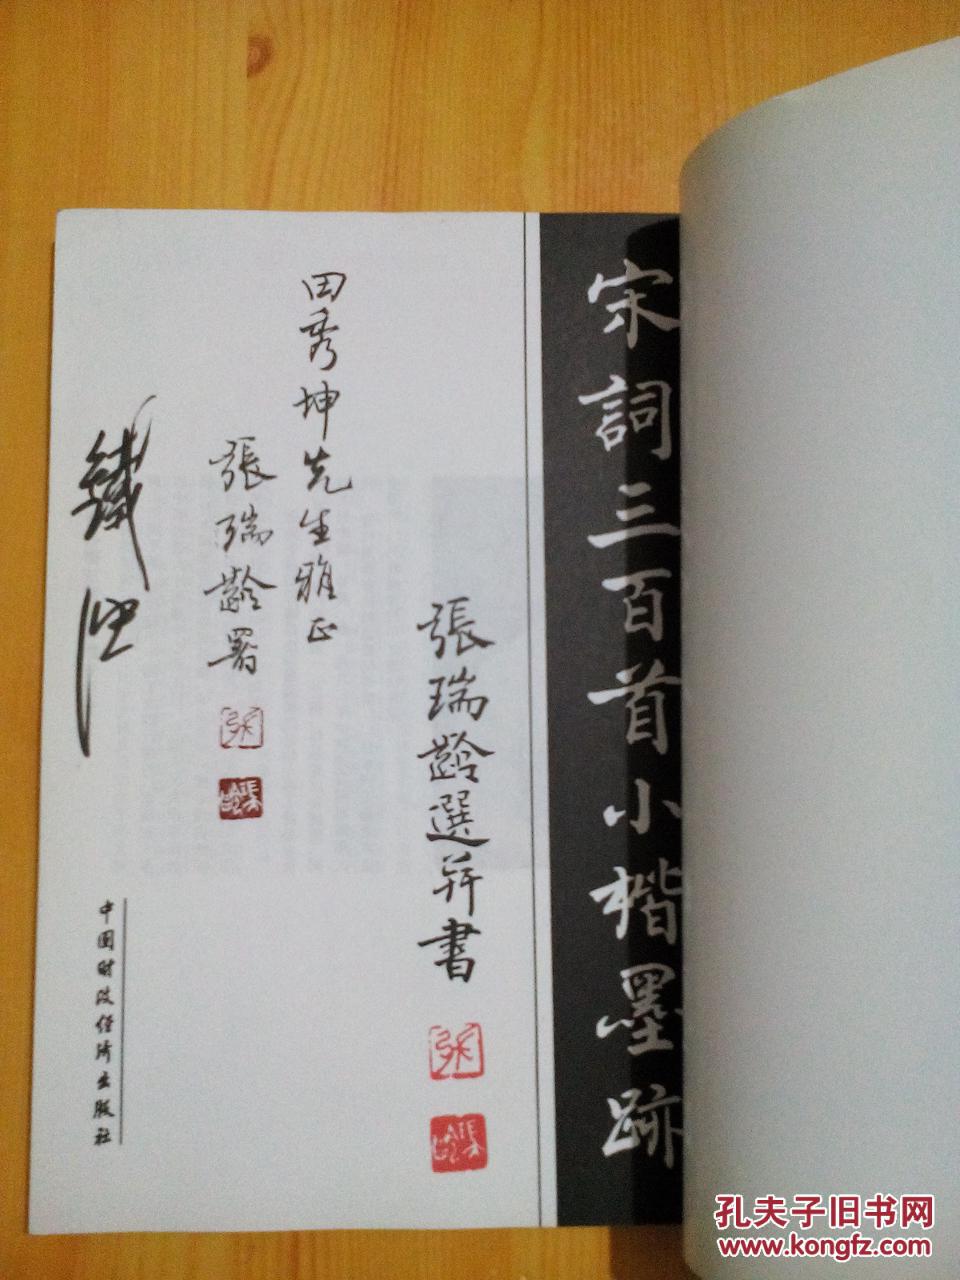 宋詞三百首小楷墨跡
張瑞齡選并書
田秀坤先生雅正
張瑞齡署
中国财政经济出版社
孔夫子旧书网
www.kongfz.com